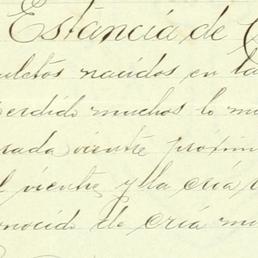 Estancia de
muletos nacidos en la
perdido muchos lo m
rada vientre próxim
l vientre y la cria
onocido de cria mu